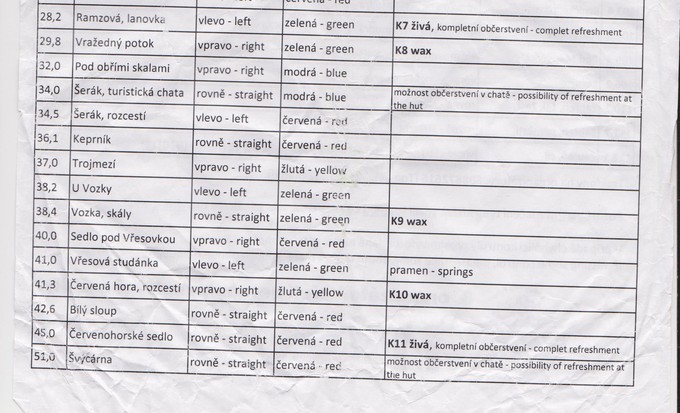 červená - red
28,2 Ramzová, lanovka vlevo - left zelená - green K7 živá, kompletní občerstvení - complet refreshment
29,8 Vražedný potok vpravo - right zelená - green K8 wax
32,0 Pod obřími skalami vpravo - right modrá - blue
34,0 Šerák, turistická chata rovně - straight modrá - blue možnost občerstvení v chatě - possibility of refreshment at
the hut
34,5 Šerák, rozcestí vlevo - left červená - red
36,1 Keprník rovně - straight červená - red
37,0 Trojmezí vpravo - right žlutá - yellow
38,2 U Vozky vlevo - left zelená - green
38,4 Vozka, skály rovně - straight zelená - green K9 wax
40,0 Sedlo pod Vřesovkou vpravo - right červená - red
41,0 Vřesová studánka vlevo - left zelená - green pramen - springs
41,3 Červená hora, rozcestí vpravo - right žlutá - yellow K10 wax
42,6 Bílý sloup rovně - straight červená - red
45,0 Červenohorské sedlo rovně - straight červená - red K11 živá, kompletní občerstvení - complet refreshment
51,0 Švýcárna rovně - straight červená - red možnost občerstvení v chatě - possibility of refreshment at
the hut